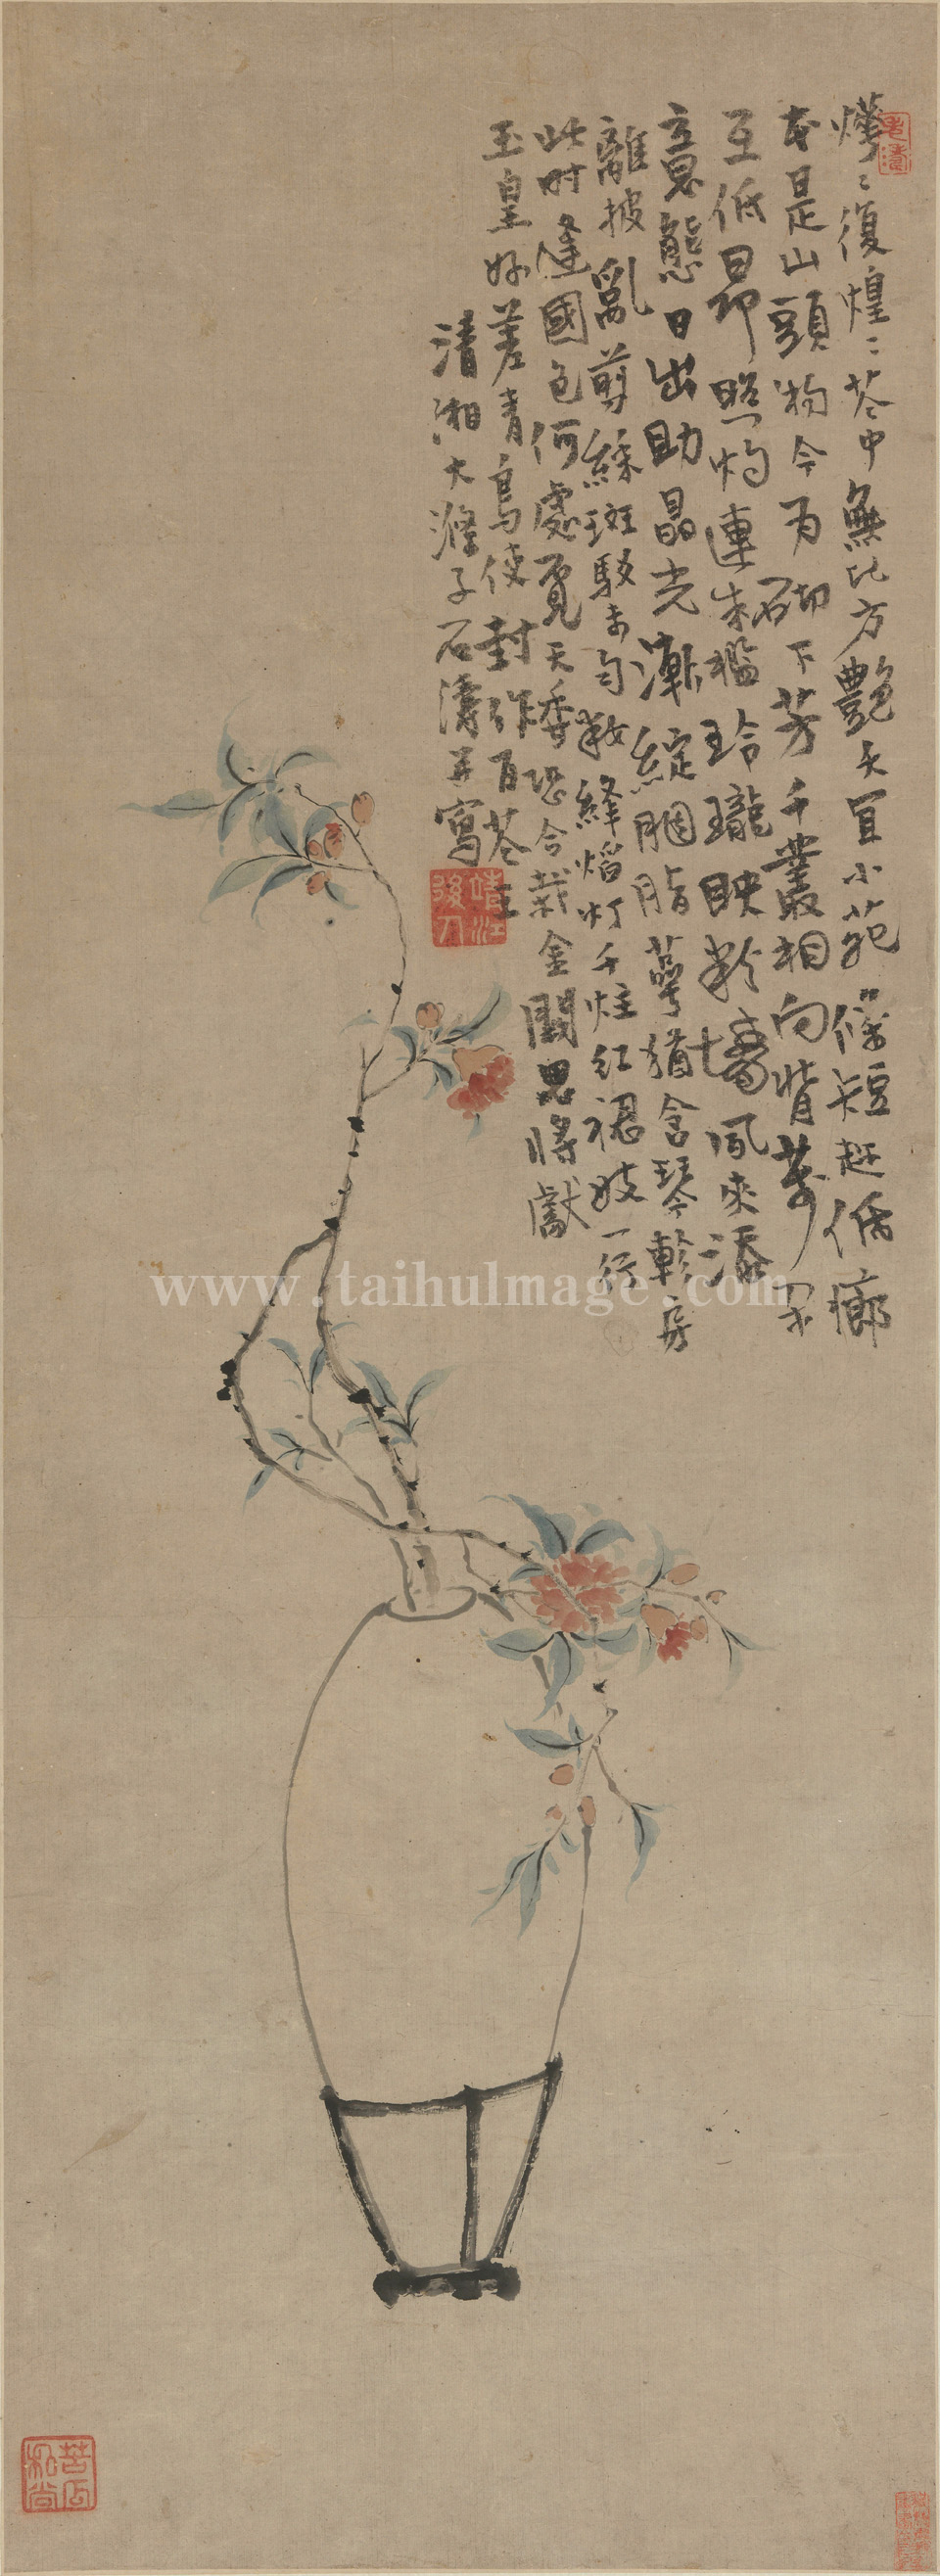 燁〻復煌〻苍中無比方艷夭宜小苑條短赶低廊
本是山頭物今為砌下芳千叢相向背萬朵
互低昂照灼連朱檻玲瓏映粉墻風來添
意態日出助晶光漸綻胭脂萼猶含琴軫房
離披亂剪綵斑駁未勻粧絳焰灯千炷红裙妓一行
此时逢國色何處覓天香恐合栽金闕思將獻
玉皇好差青鳥使封作百苍王
清湘大滌子石濤并寫
靖江後人
www.taihuImage.com